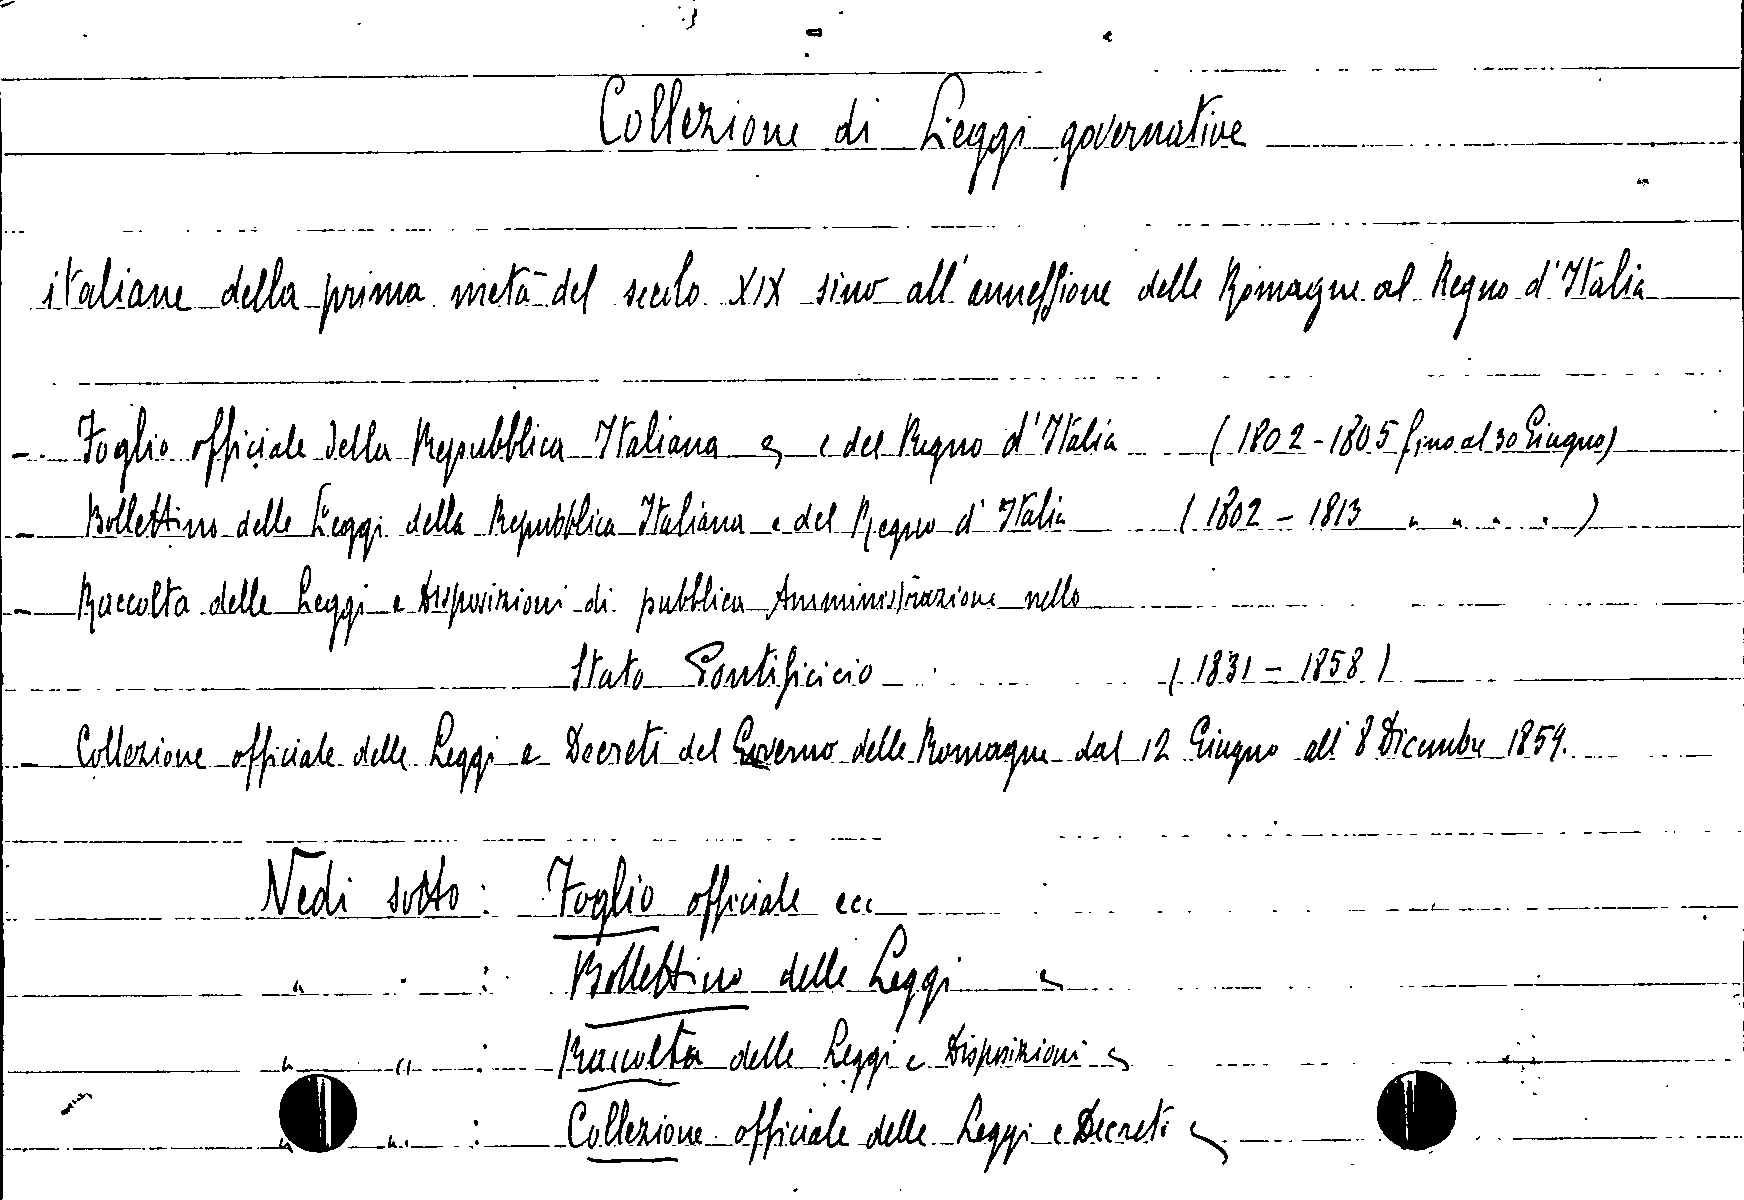 Collezione di Leggi governative
italiane della prima metà del secolo XIX sino all'annessione delle Romagne al Regno d'Italia
- Foglio officiale della Repubblica Italiana e del Regno d'Italia (1802-1805 fino al 30 Giugno)
- Bollettino delle Leggi della Repubblica Italiana e del Regno d'Italia (1802-1813 " " " " )
- Raccolta delle Leggi e Disposizioni di pubblica Amministrazione nello
Stato Pontificio (1831-1858)
- Collezione officiale delle Leggi e Decreti del Governo delle Romagne dal 12 Giugno all' 8 Dicembre 1859.
Vedi sotto: Foglio officiale ecc
" " : Bollettino delle Leggi
" " : Raccolta delle Leggi e Disposizioni
" " : Collezione officiale delle Leggi e Decreti